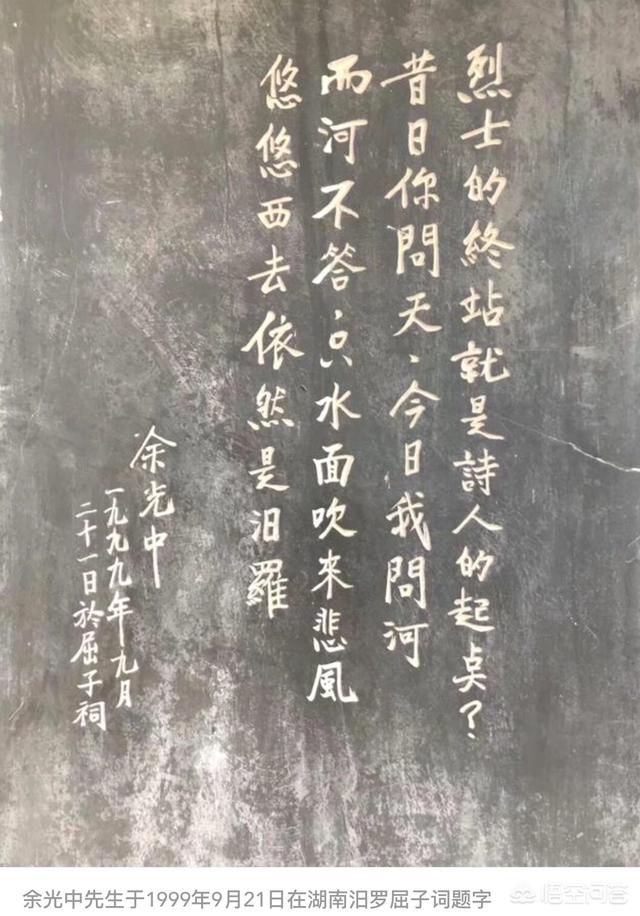 烈士的終站就是詩人的起点？
昔日你問天、今日我問河
而河不答、只水面吹來悲風
悠悠西去依然是汨羅
余光中
一九九九年九月
二十一日於屈子祠
余光中先生于1999年9月21日在湖南汨罗屈子词题字
悟空问答